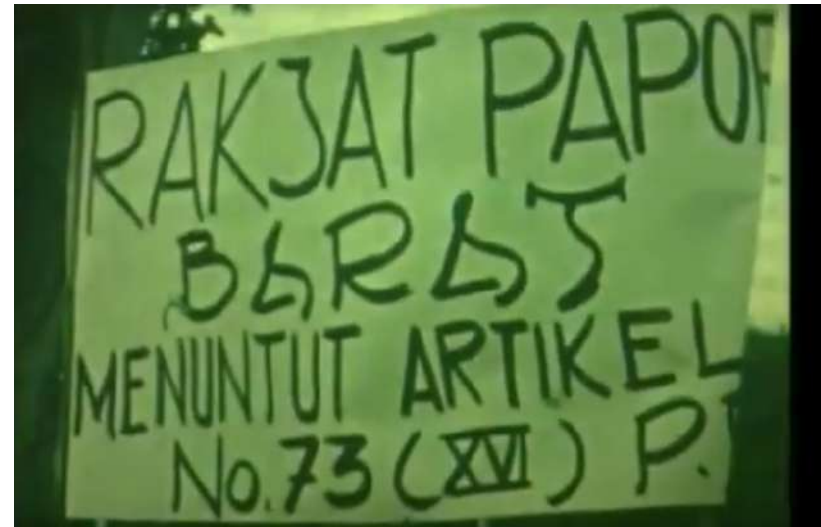 RAKJAT PAPO
BARAT
MENUNTUT ARTIKEL
No.73 (XVI) P.